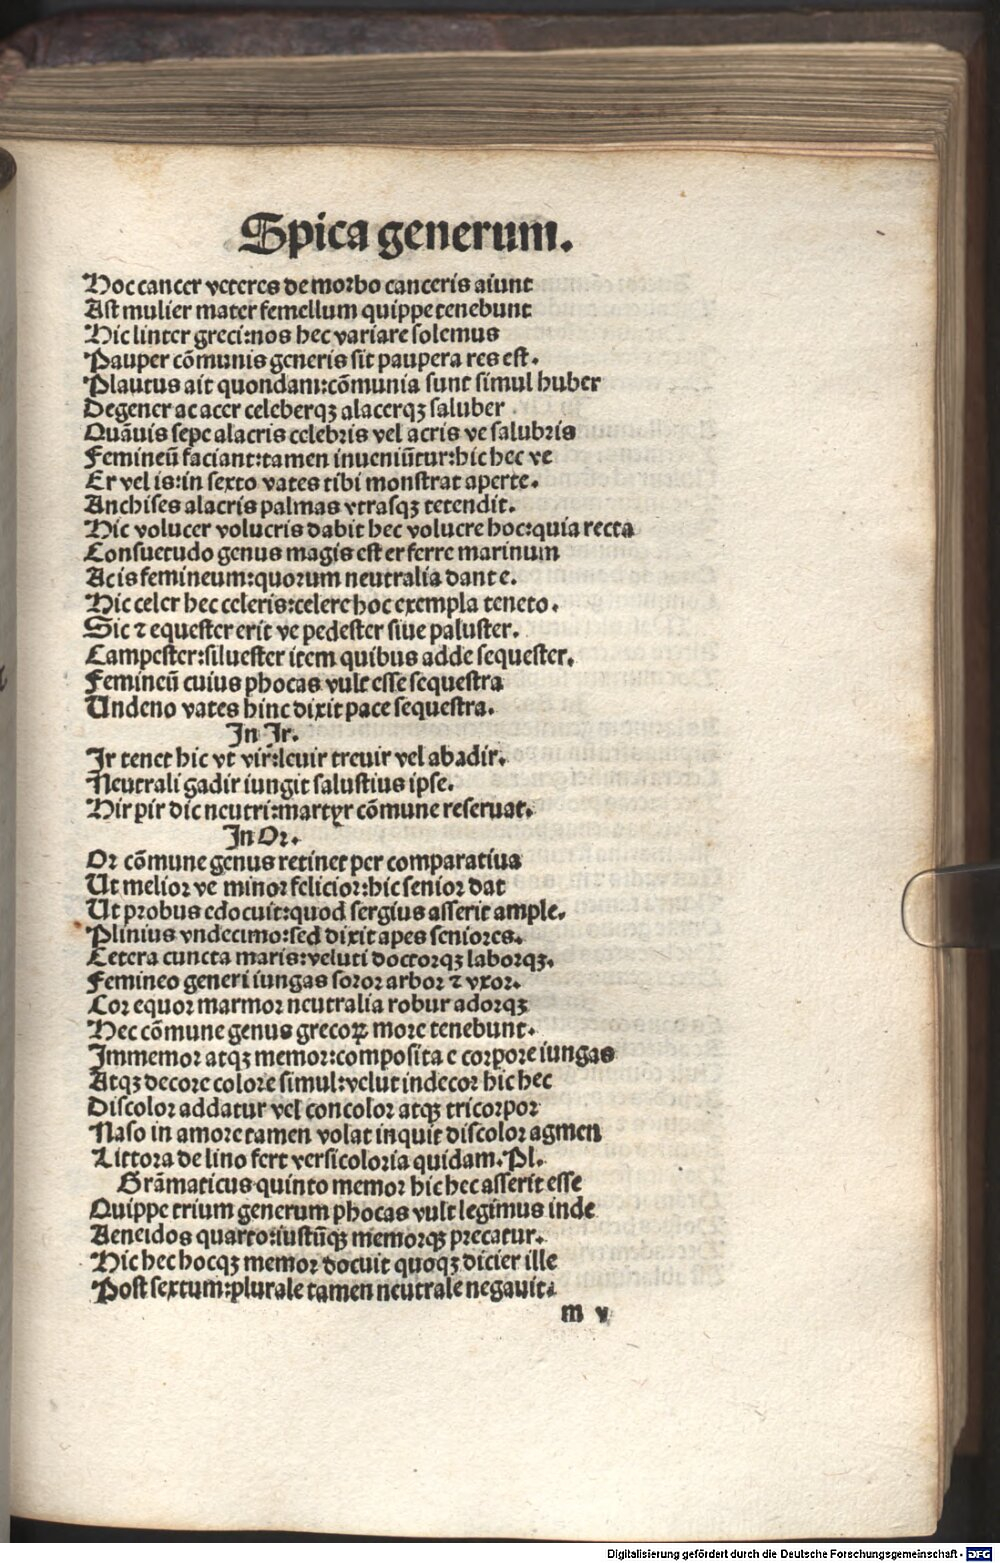 Spica generum.
Hoc cancer veteres de morbo canceris aiunt
Ast mulier mater femellum quippe tenebunt
Hic linter greci:nos hec variare solemus
Pauper cōmunis generis sit paupera res est.
Plautus ait quondam:cōmunia sunt simul huber
Degener ac acer celeberqꝫ alacerqꝫ saluber
Quāuis sepe alacris celebris vel acris ve salubris
Femineū faciant:tamen inueniūtur:hic hec ve
Er vel is:in sexto vates tibi monstrat aperte.
Anchises alacris palmas vtrasqꝫ tetendit.
Hic volucer volucris dabit hec volucre hoc:quia recta
Consuetudo genus magis est er ferre marinum
Acis femineum:quorum neutralia dant e.
Hic celer hec celeris:celere hoc exempla teneto.
Sic ⁊ equester erit ve pedester siue paluster.
Campester:siluester item quibus adde sequester.
Femineū cuius phocas vult esse sequestra
Undeno vates hinc dixit pace sequestra.
In Ir.
Ir tenet hic vt vir:leuir treuir vel abadir.
Neutrali gadir iungit salustius ipse.
Hir pir dic neutri:martyr cōmune reseruat.
In Or.
Or cōmune genus retinet per comparatiua
Ut melior ve minor felicior:hic senior dat
Ut probus edocuit:quod sergius asserit ample.
Plinius vndecimo:sed dixit apes seniores.
Cetera cuncta maris:veluti doctorqꝫ laborqꝫ.
Femineo generi iungas soror arbor ⁊ vxor.
Cor equor marmor neutralia robur adorqꝫ
Hec cōmune genus grecoꝝ more tenebunt.
Immemor atqꝫ memor:composita e corpore iungas
Atqꝫ decore colore simul:velut indecor hic hec
Discolor addatur vel concolor atqꝫ tricorpor
Naso in amore tamen volat inquit discolor agmen
Littora de lino fert versicoloria quidam.Pl.
Grāmaticus quinto memor hic hec asserit esse
Quippe trium generum phocas vult legimus inde
Aeneidos quarto:iustūqꝫ memorqꝫ precatur.
Hic hec hocqꝫ memor docuit quoqꝫ dicier ille
Post sextum:plurale tamen neutrale negauit.
m v
Digitalisierung gefördert durch die Deutsche Forschungsgemeinschaft - DFG